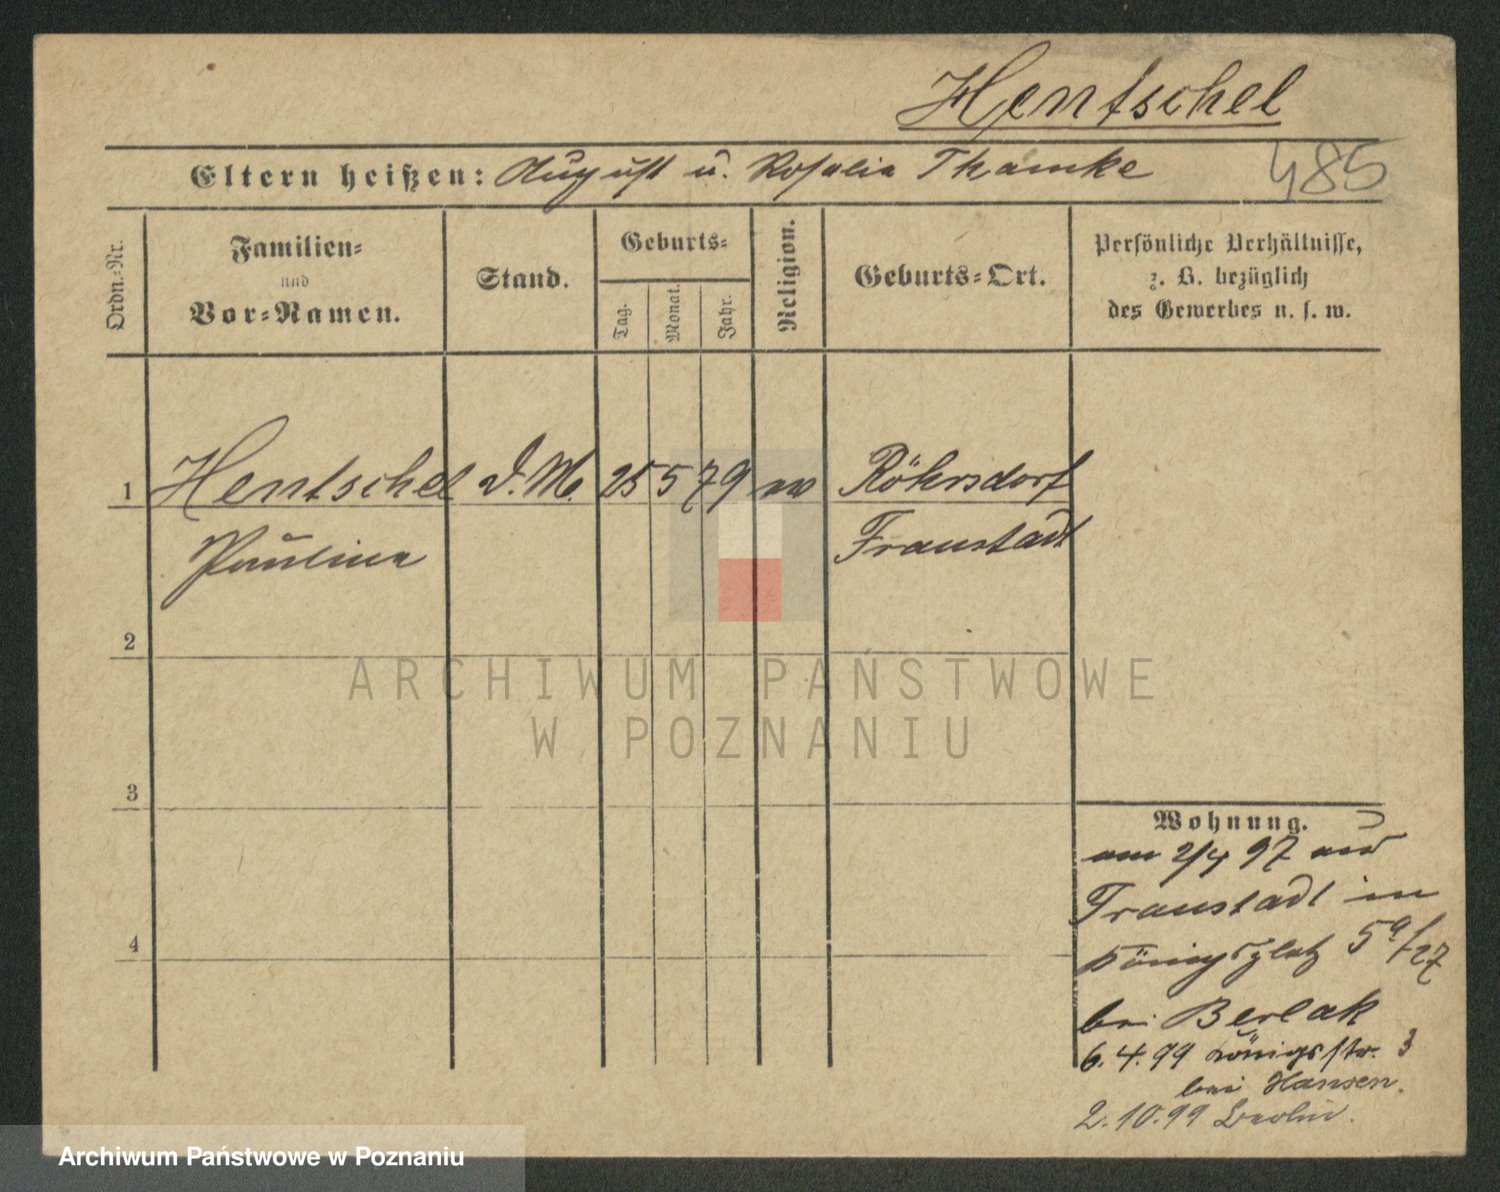 Hentschel
Eltern heißen: August u. Rosalia Thamke
485
Ordn.=Nr.
Familien=
und
Vor=Namen.
Stand.
Geburts=
Tag.
Monat.
Jahr.
Religion.
Geburts=Ort.
Persönliche Verhältnisse,
z. B. bezüglich
des Gewerbes u. s. w.
1 Hentschel D. M. 25 5 79 ev Röhrsdorf
Pauline Fraustadt
2
3
4
Wohnung.
am 2/4 97 aus
Fraustadt in
Königsplatz 5a/27
bei Berlak
6.4.99 Königsstr. 3
bei Hansen.
2.10.99 Berlin.
ARCHIWUM PAŃSTWOWE
W POZNANIU
Archiwum Państwowe w Poznaniu